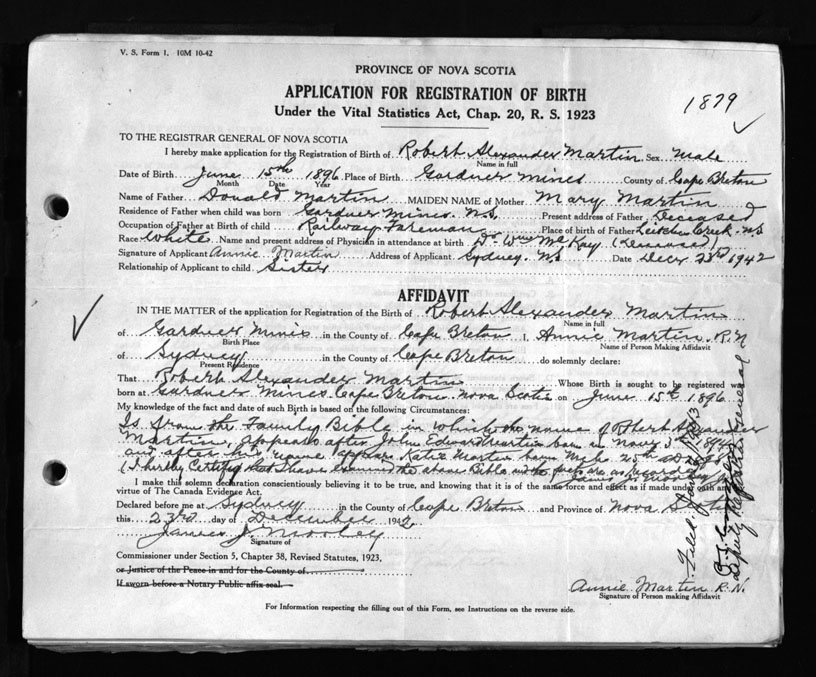 V. S. Form 1. 10M 10-42
PROVINCE OF NOVA SCOTIA
APPLICATION FOR REGISTRATION OF BIRTH
Under the Vital Statistics Act, Chap. 20, R. S. 1923
1879
TO THE REGISTRAR GENERAL OF NOVA SCOTIA
I hereby make application for the Registration of Birth of Robert Alexander Martin Sex Male
Name in full
Date of Birth June 15th 1896 Place of Birth Gardner Mines County of Cape Breton
Month Date Year
Name of Father Donald Martin MAIDEN NAME of Mother Mary Martin
Residence of Father when child was born Gardner Mines N.S. Present address of Father Deceased
Occupation of Father at Birth of child Railway Foreman Place of birth of Father Leitches Creek N.S
Race White Name and present address of Physician in attendance at birth Dr Wm McKay (Deceased)
Signature of Applicant Annie Martin Address of Applicant Sydney N.S Date Decr 23rd 1942
Relationship of Applicant to child Sister
AFFIDAVIT
IN THE MATTER of the application for Registration of the Birth of Robert Alexander Martin
Name in full
of Gardner Mines in the County of Cape Breton I, Annie Martin R.N
Birth Place Name of Person Making Affidavit
of Sydney in the County of Cape Breton do solemnly declare:
Present Residence
That Robert Alexander Martin Whose Birth is sought to be registered was
born at Gardner Mines Cape Breton Nova Scotia on June 15th 1896
My knowledge of the fact and date of such Birth is based on the following Circumstances:
Is from the Family Bible in which the name of Robert Alexander
Martin, appears after John Edward Martin born on Novr 3rd 1894
and after his name appears Katie Martin born 25th
(I hereby Certify that I have examined the above Bible and the facts are as
James J. Mooney
I make this solemn declaration conscientiously believing it to be true, and knowing that it is of the same force and effect as if made under oath and
virtue of The Canada Evidence Act.
Declared before me at Sydney in the County of Cape Breton and Province of Nova Scotia
this 23rd day of December 1942
James J. Mooney
Signature of
Commissioner under Section 5, Chapter 38, Revised Statutes, 1923,
or Justice of the Peace in and for the County of
If sworn before a Notary Public affix seal.
Annie Martin R.N.
Signature of Person making Affidavit
For Information respecting the filling out of this Form, see Instructions on the reverse side.
Filed
Deputy Registrar General